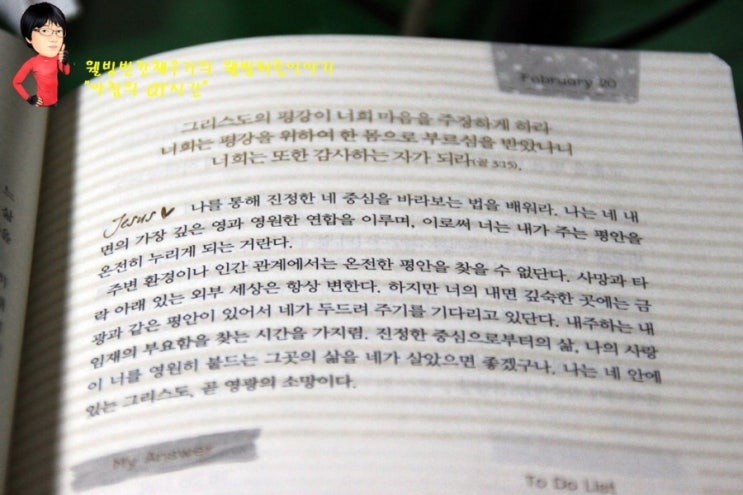 February 20
그리스도의 평강이 너희 마음을 주장하게 하라
너희는 평강을 위하여 한 몸으로 부르심을 받았나니
너희는 또한 감사하는 자가 되라(골 3:15).
Jesus♥ 나를 통해 진정한 네 중심을 바라보는 법을 배워라. 나는 네 내
면의 가장 깊은 영과 영원한 연합을 이루며, 이로써 너는 내가 주는 평안을
온전히 누리게 되는 거란다.
주변 환경이나 인간 관계에서는 온전한 평안을 찾을 수 없단다. 사망과 타
락 아래 있는 외부 세상은 항상 변한다. 하지만 너의 내면 깊숙한 곳에는 금
광과 같은 평안이 있어서 네가 두드려 주기를 기다리고 있단다. 내주하는 내
임재의 부요함을 찾는 시간을 가지렴. 진정한 중심으로부터의 삶, 나의 사랑
이 너를 영원히 붙드는 그곳의 삶을 네가 살았으면 좋겠구나. 나는 네 안에
있는 그리스도, 곧 영광의 소망이다.
My Answer
To Do List